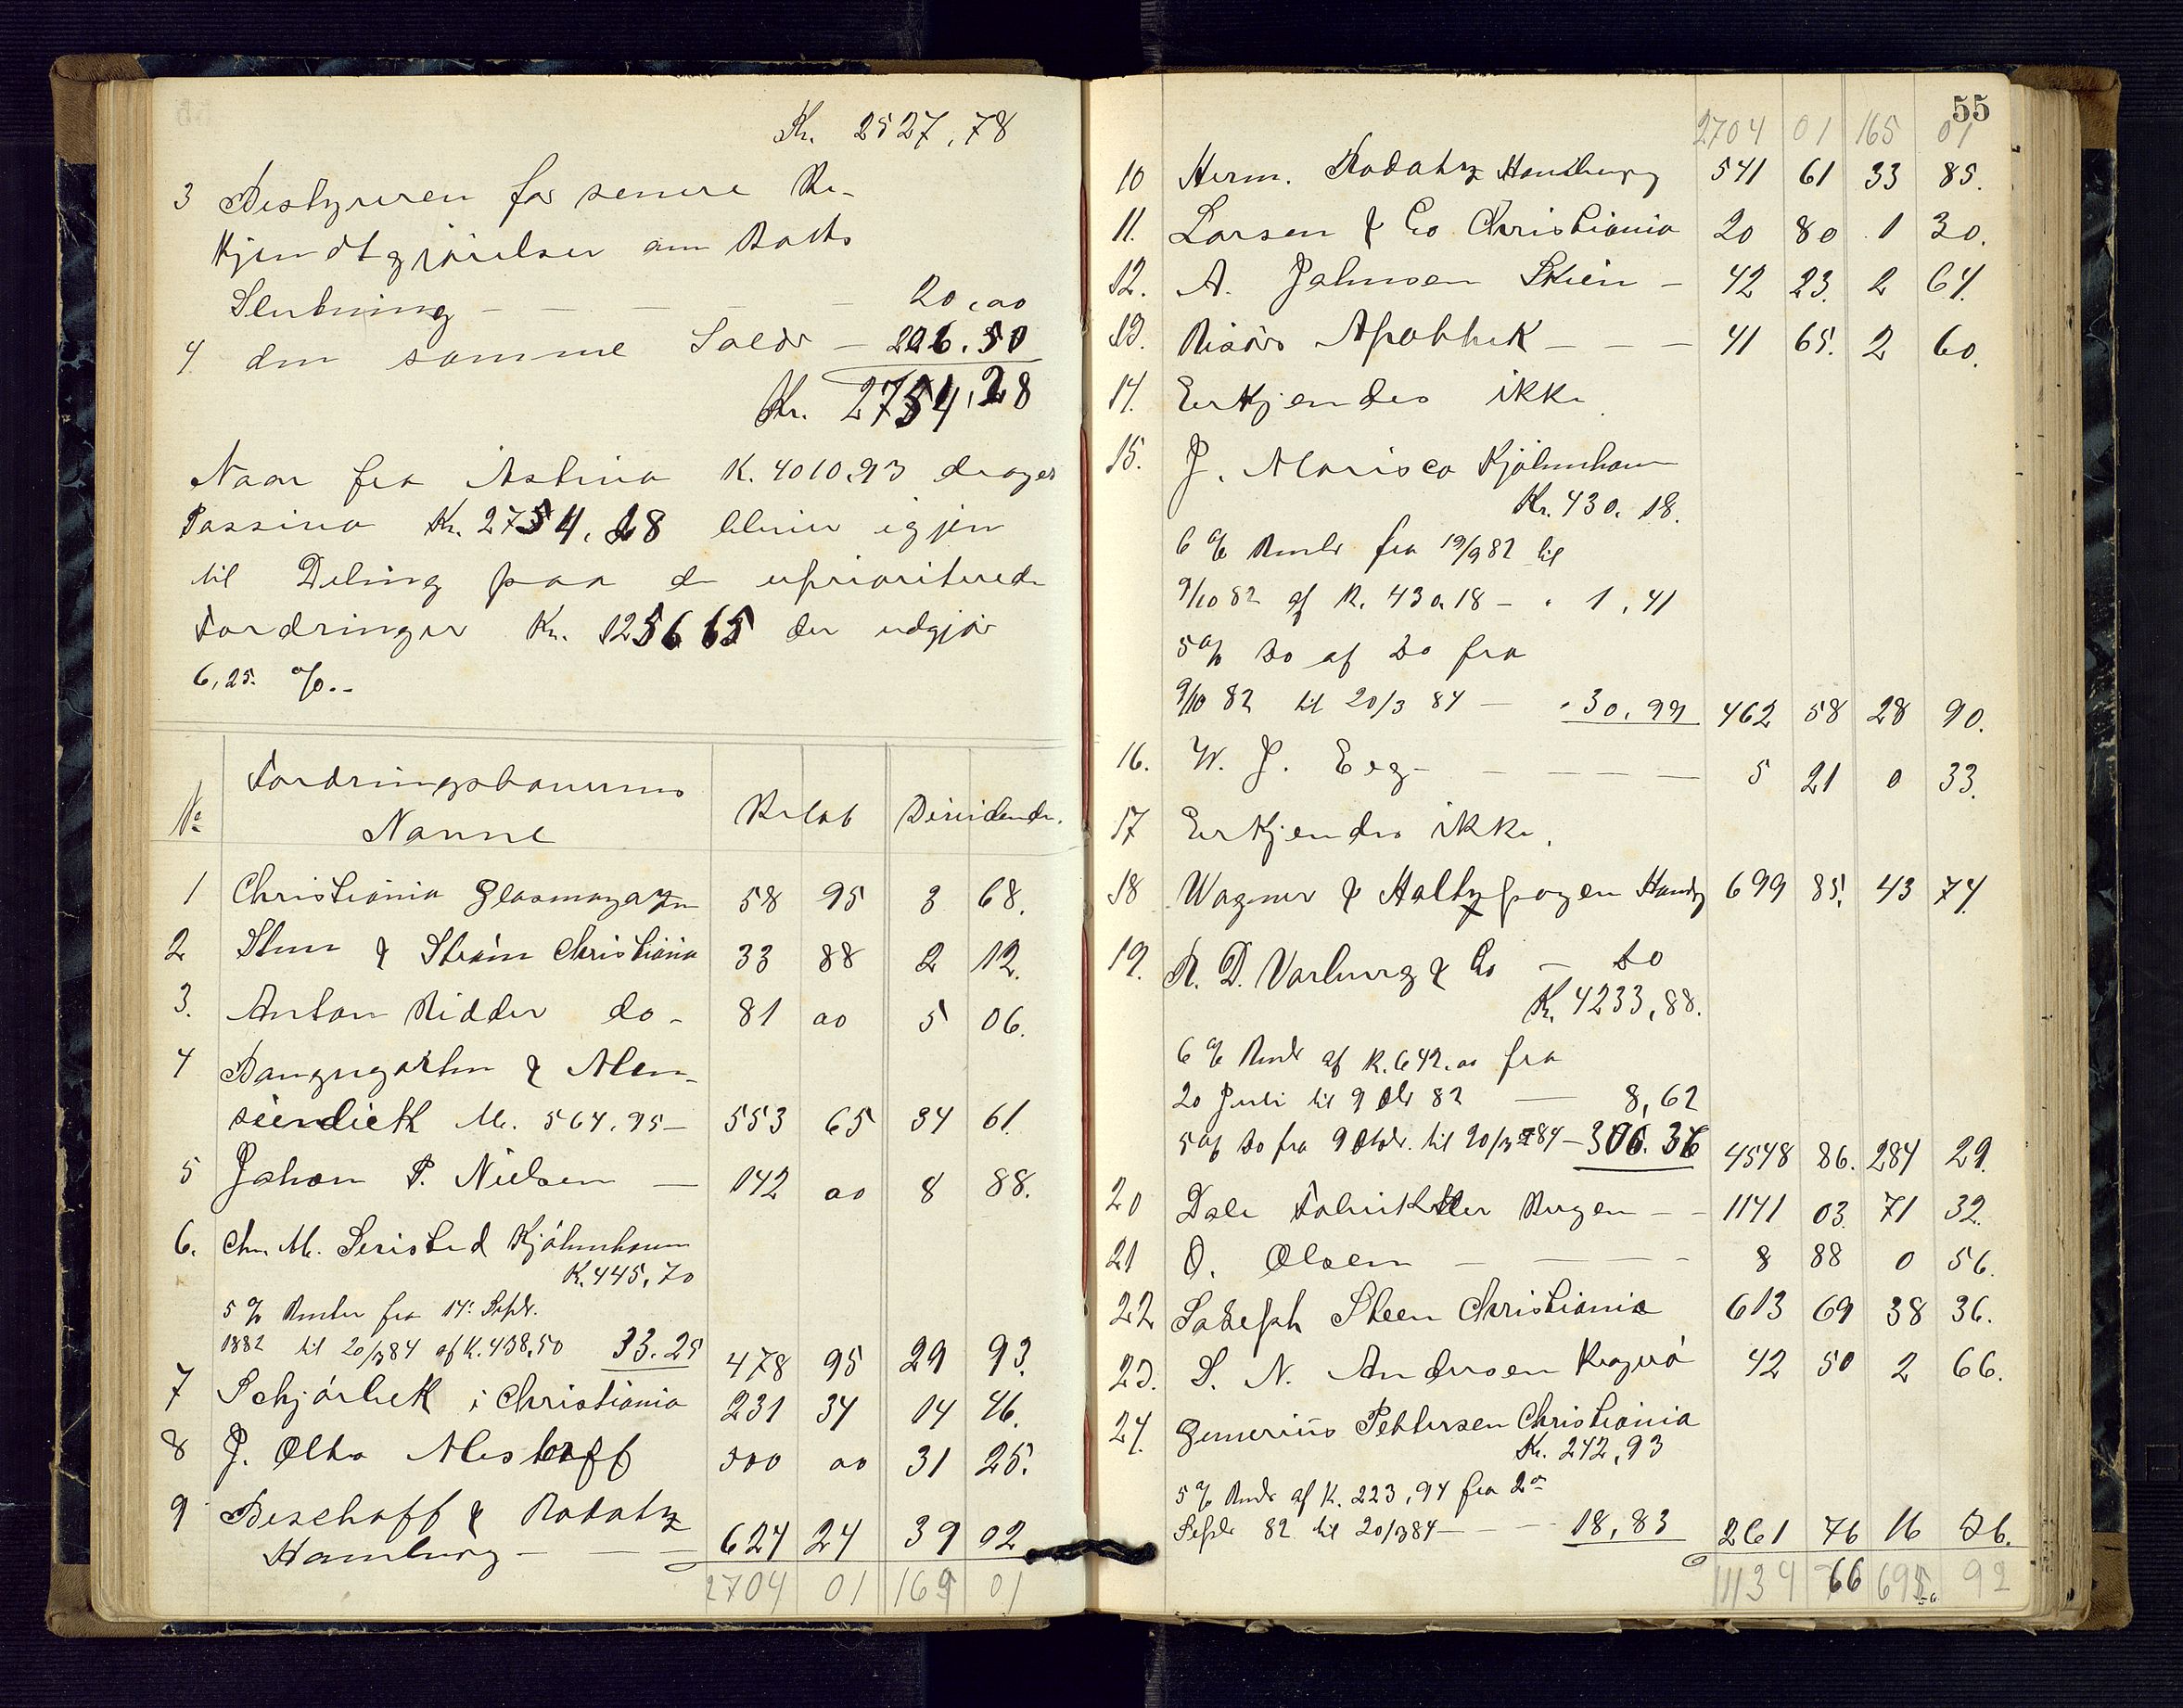 Kr. 2527,78
3 Bestyreren for senere Be-
kjendtgjørelser om Boets
Slutning - - - - 20,00
4 den samme Salær - 206.50
Kr. 2754,28
Naar fra Activa K. 4010,93 drages
Passiva Kr. 2754,28 bliver igjen
til Deling paa de uprioriterede
Fordringer Kr. 125665 der udgjør
6,25 %..
No Fordringshavernes Beløb Dividende.
Navne
1 Christiania Glasmagazin 58 95 3 68.
2 Steen & Strøm Christiania 33 88 2 12.
3. Anton Ridder do - 81 00 5 06.
4 Baumgarten & Men-
siendieck M. 564,95 - 553 65 34 61
5 Johan P. Nielsen - 142 00 8 88.
6. Chr. M. Kjøbenhavn
K. 445,70
5 % Renter fra 14. Septr.
1882 til 20/3 84 af K. 438,50 33.25 478 95 29 93.
7 Schjørbeck i Christiania 231 34 14 46.
8 J. Otto Mestorff 500 00 31 25.
9 Bischoff & Rodatz
Hamburg - - - 624 24 39 02
2704 01 169 01
55
2704 01 165 01
10 Herm. Rodatz Hamburg 541 61 33 85.
11. Larsen & Co Christiania 20 80 1 30.
12. A. Johnsen Skien - 42 23. 2 64.
13. Risørs Apothek - - - 41 65. 2 60.
14. Erkjendes ikke
15. J. Moresco Kjøbenhavn
Kr. 430. 18.
6 % Rente fra 19/9 82 til
9/10 82 af K. 430.18 - " 1,41
5 % Do af Do fra
9/10 82 til 20/3 84 - " 30,99 462 58 28 90.
16. W. J. Eeg - - - - - 5 21 0 33.
17 Erkjendes ikke.
18 Wagner & Hambg 699 85. 43 74.
19. R. D. Warburg & Co - Do
K. 4233,88.
6 % Rente af K. 642.00 fra
20 Juli til 9 Okt 82 - 8,62
5 % Do fra 9 Oktbr. til 20/3 84 - 306.36 4548 86. 284 29.
20 Dale Fabrikker Bergen - - 1141 03. 71 32.
21 O. Olsen - - - - 8 88 0 56.
22 Joseph Steen Christiania 613 69 38 36.
23. S. N. Andersen Kragerø 42 50 2 66.
24. Gunerius Pettersen Christiania
Kr. 242,93
5 % Rente af K. 223,94 fra 2den
Septr 82 til 20/3 84 - - - 18,83 261 76 16 36.
11134 66 695 92